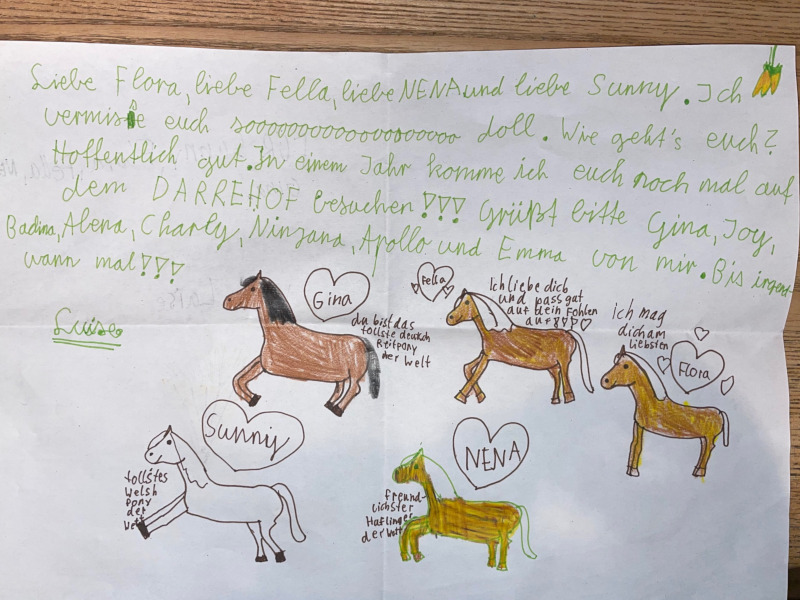 Liebe Flora, liebe Fella, liebe NENA und liebe Sunny. Ich
vermisse euch sooooooooooooooooooo doll. Wie geht's euch?
Hoffentlich gut. In einem Jahr komme ich euch noch mal auf
dem DARREHOF besuchen!!! Grüßt bitte Gina, Joy,
Badina, Alena, Charly, Ninjana, Apollo und Emma von mir. Bis irgent
wann mal!!!
Luise
Gina
du bist das
tollste deutsch
Reitpony
der Welt
Fella
Ich liebe dich
und pass gut
auf dein Fohlen
auf
ich mag
dich am
liebsten
Flora
Sunny
tollstes
Welsh
Pony
der
Welt
NENA
freund-
lichster
Haflinger
der Welt